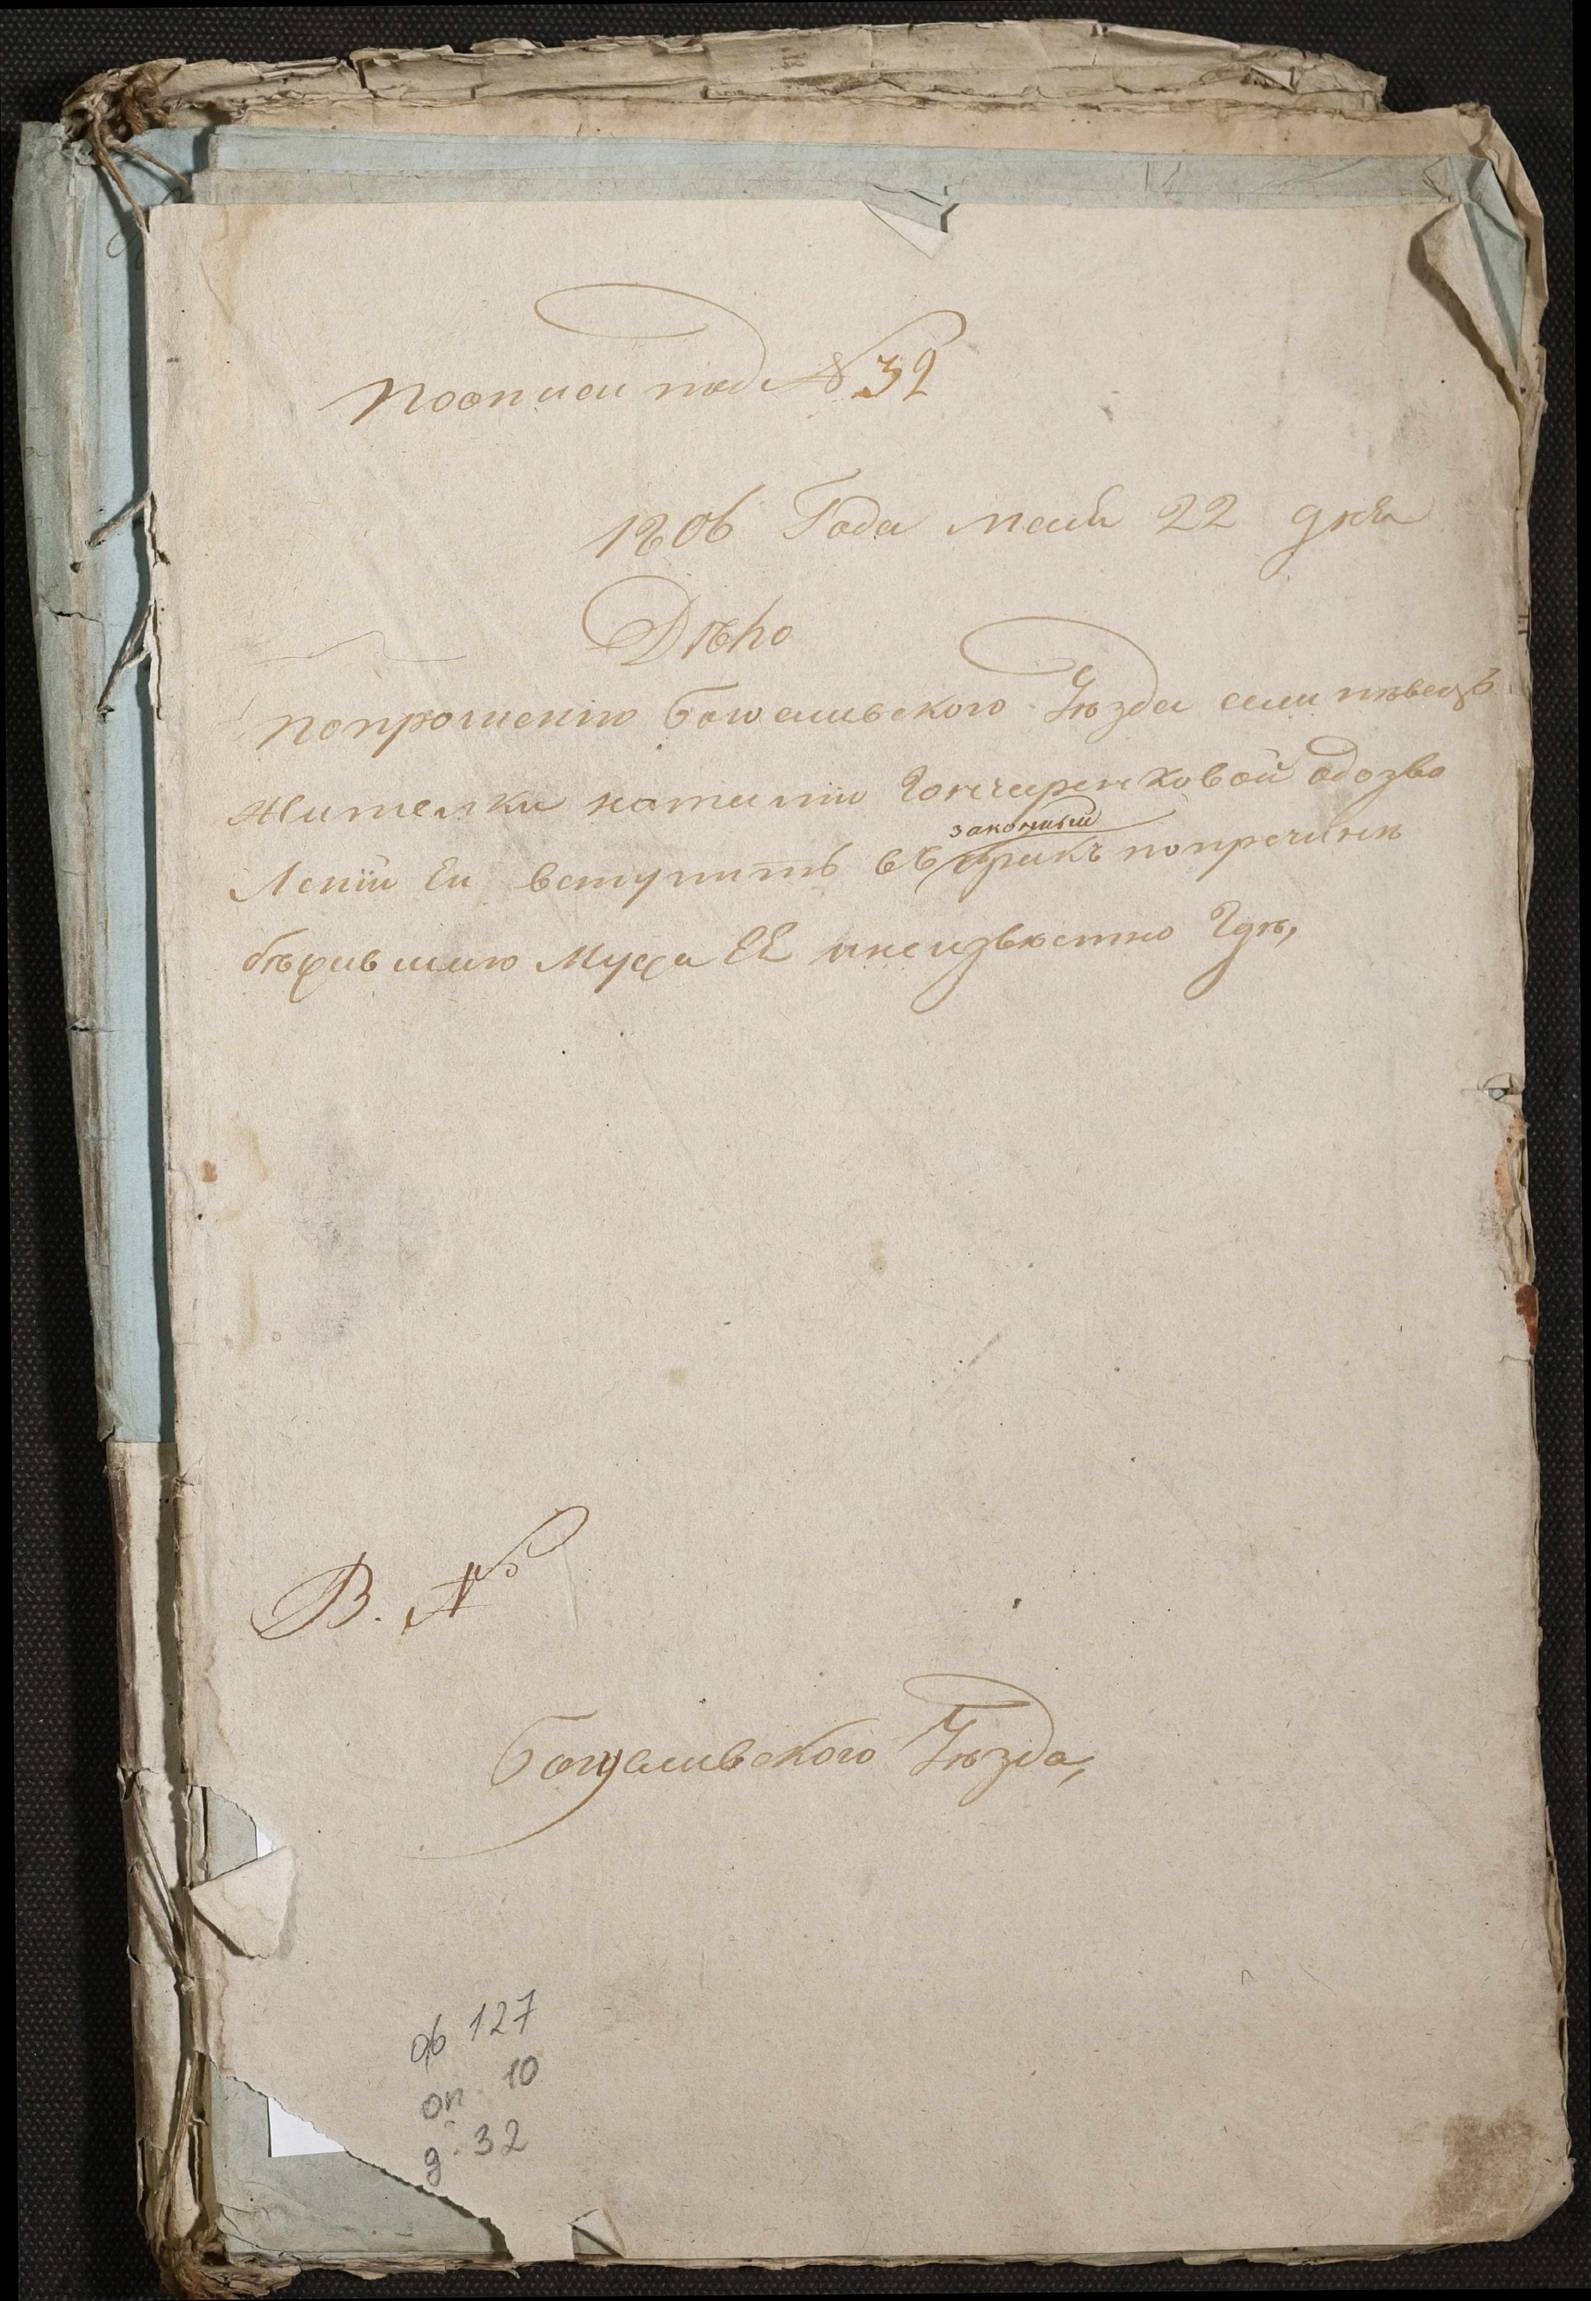 по описи под № 32
1806 Года маія 22 дня
Дѣло
по прошению Богославского Уѣзда села пѣвецъ
жителки наталии Гончаренковой о дозво
лении Ей вступить въ законный бракъ по причинѣ
бѣжившаго мужа ЕЕ и неизвѣстно Гдѣ,
В. №
Богуславского Уѣзда,
ф 127
оп. 10
д. 32